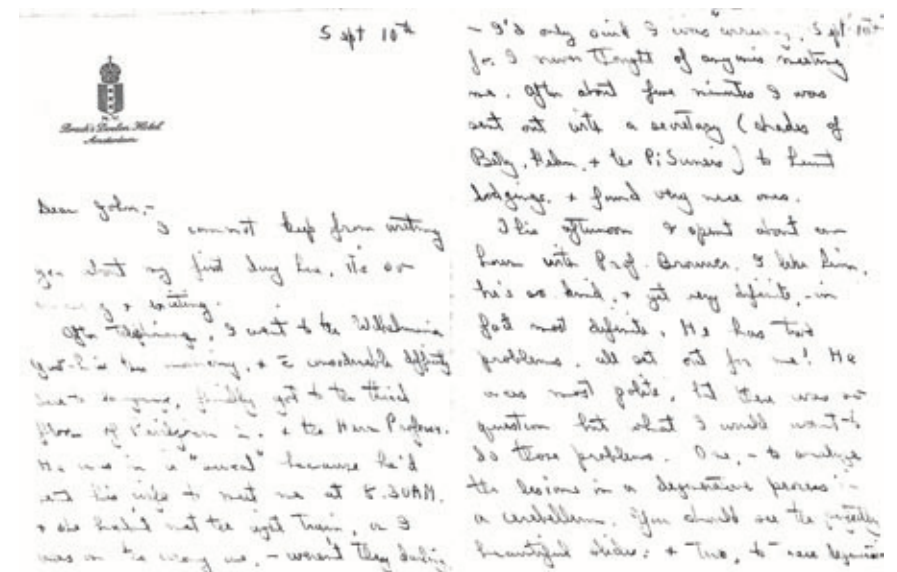 Sept 10th
Amsterdam
Dear John,-
I cannot keep from writing
you about my first day here, it's so
& exciting.
After telephoning, I went to the Wilhelmina
this morning, & c̄ considerable difficulty
finally got to the third
floor of & the Herr Professor.
He was in a "sweat" because he'd
sent his wife to meet me at 8.30AM.
& she hadn't met the right train, or I
was on the wrong one, - weren't they darling
- I'd only said I was arriving, Sept 10th
for I never thought of anyone meeting
me. After about five minutes I was
sent out with a secretary (shades of
Betty, & the Pi Suñers) to hunt
lodgings, & found very nice ones.
This afternoon I spent about an
hour with Prof. Brouwer. I like him,
he's so kind, & yet very definite, - in
fact most definite. He has two
problems, all set out for me! He
was most polite, but there was no
question but what I would want to
do those problems. One, - to analyze
the lesions in a degenerative process in
a cerebellum. You should see the perfectly
beautiful slides; & Two, to